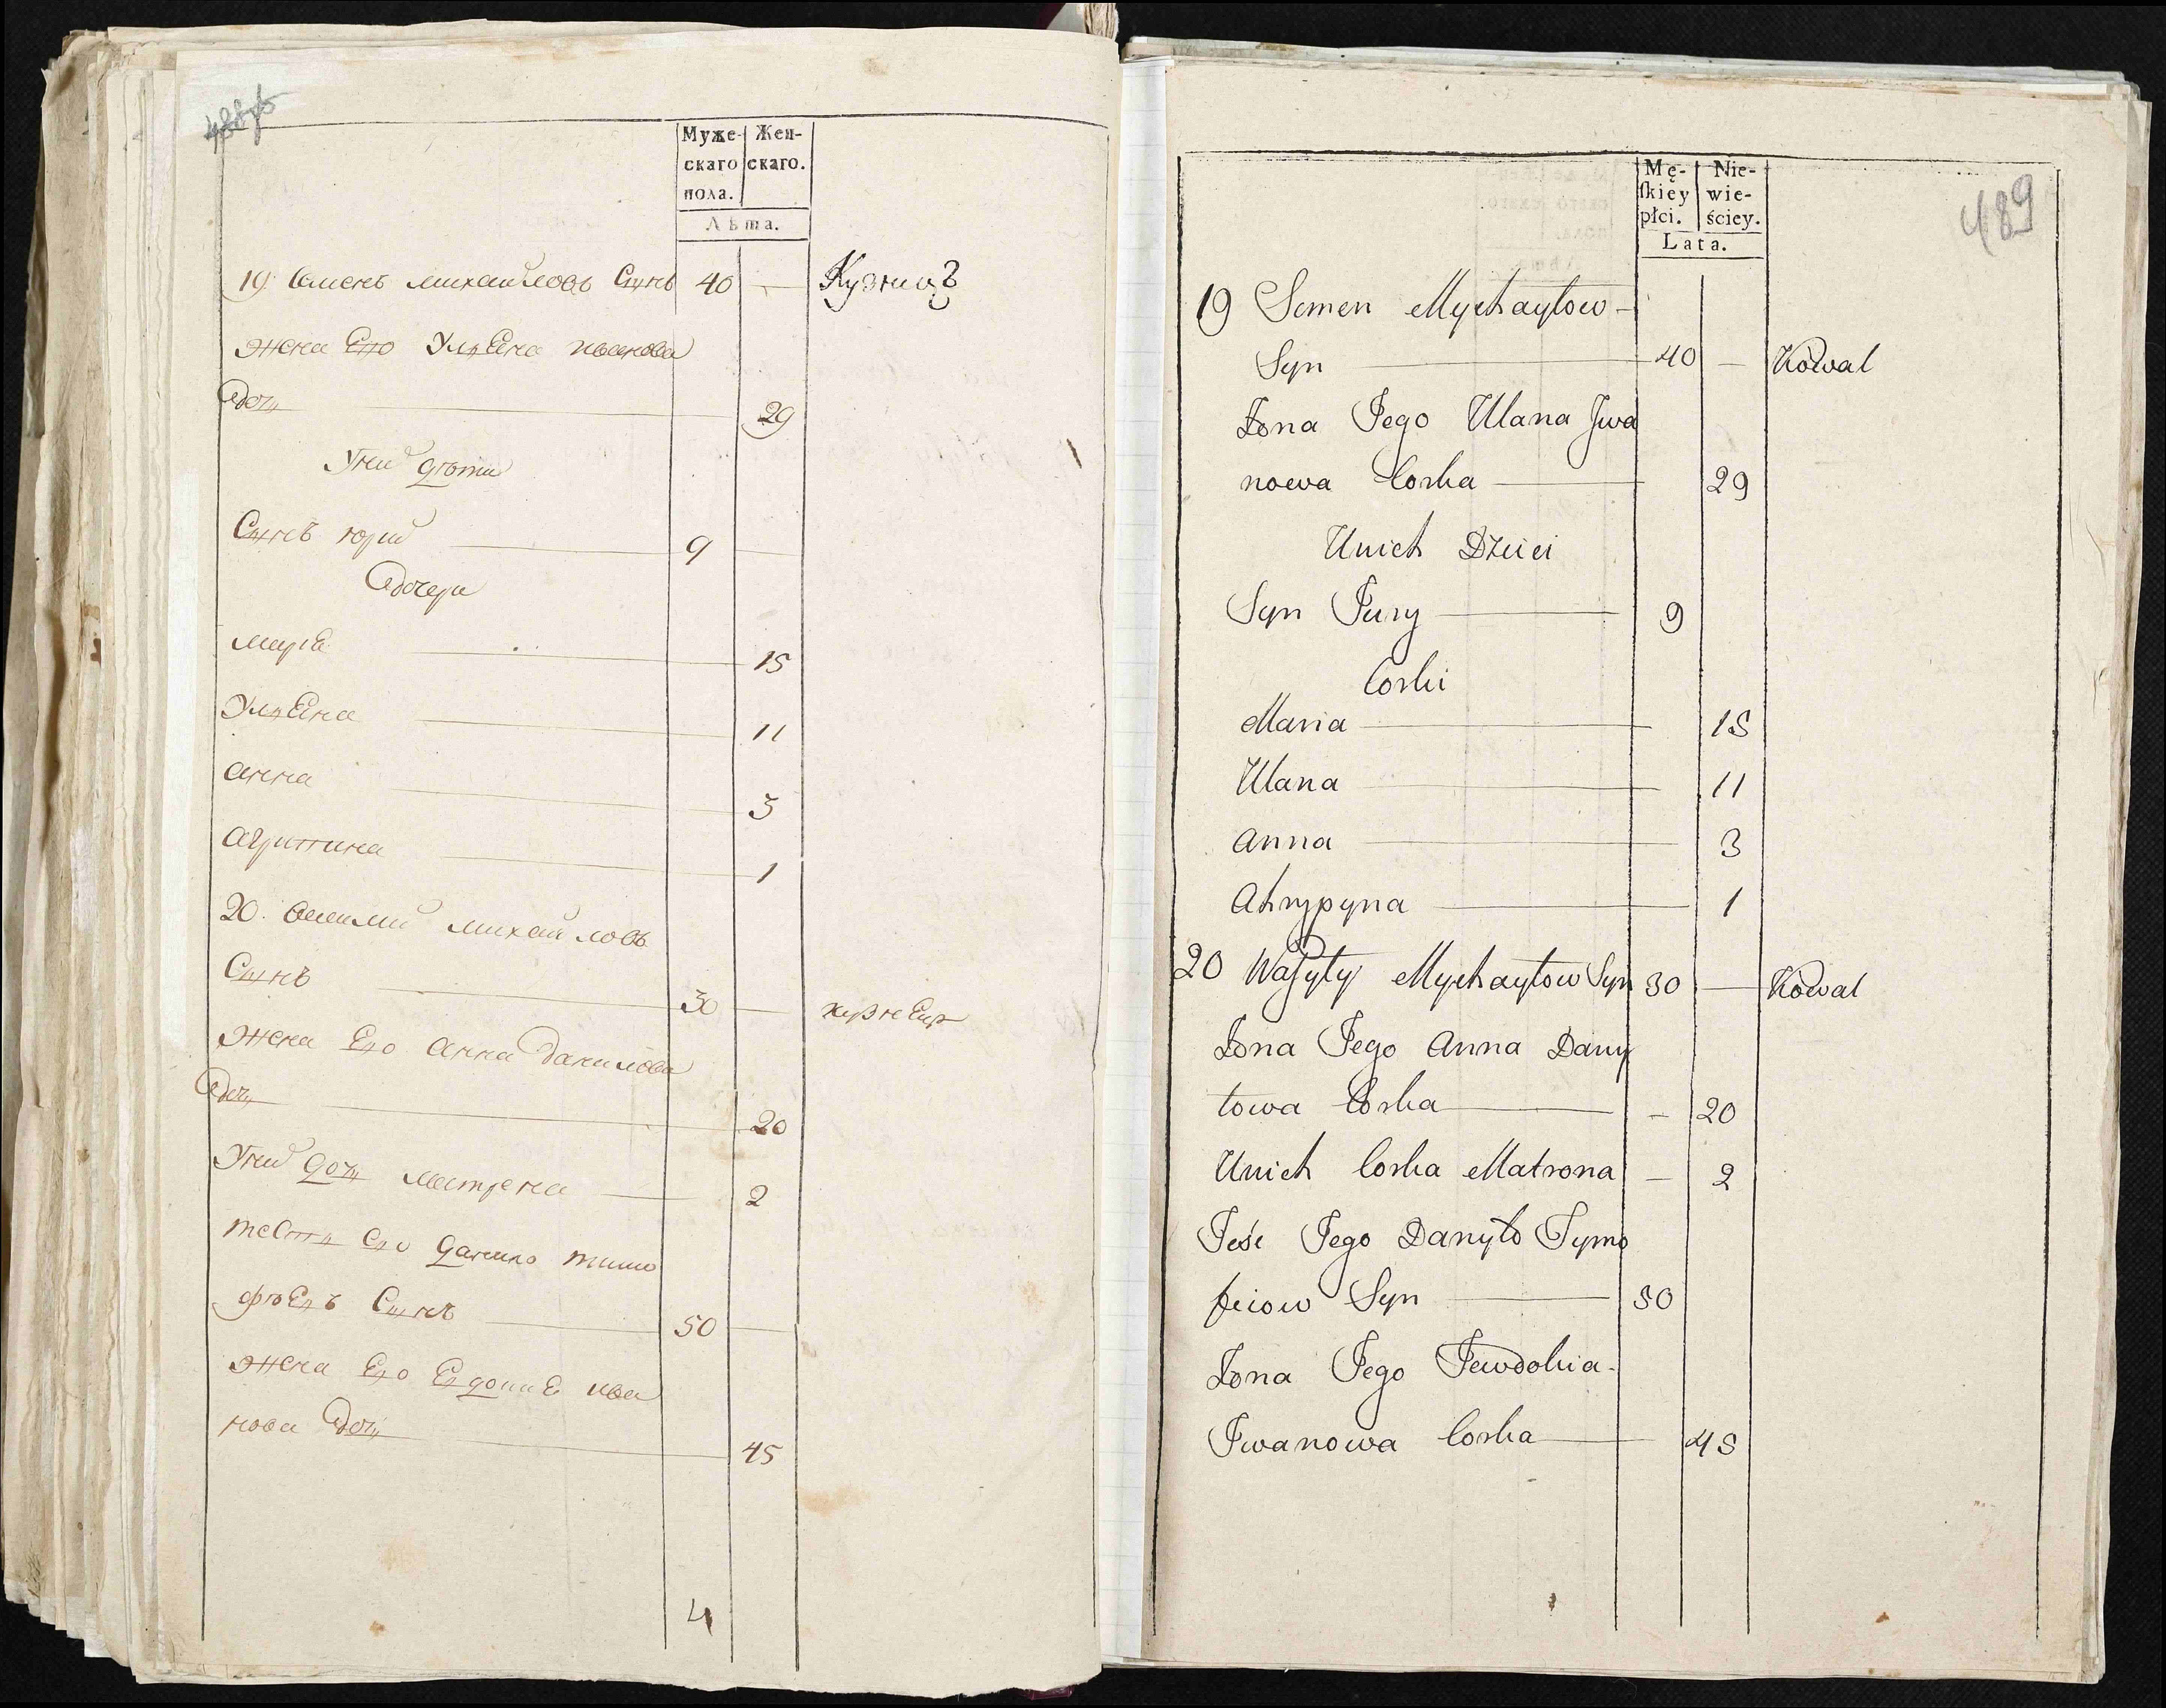 488об
Муже- Жен-
скаго скаго.
пола.
Лѣта.
19 Семенъ михайловъ Сынъ 40 — Кузнецъ
жена Его Ульяна иванова
дочь 29
У них дѣти
Сынъ юрий 9 —
дочери
марія 15
Ульяна 11
анна 3
агрипина 1
20. михайловъ
Сынъ 30 — кузнецъ
жена Его анна данилова
дочь 20
У них дочь матрена 2
тесть его данило тимо
фѣевъ Сынъ 50 —
жена Его Евдокия ива
нова дочь 45
4
489
Mę- Nie-
ſkiey wie-
płci. ściey.
Lata.
19 Semen Mychayłow-
Syn 40 — Kowal
Żona Jego Ulana Jwa
nowa Corka 29
Unich Dzieci
Syn Jury 9
Corki
Maria 15
Ulana 11
Anna 3
Ahrypyna 1
20 Waſyły Mychayłow Syn 30 — Kowal
Żona Jego Anna Dany
łowa Corka — 20
Unich Corka Matrona — 2
Teść Jego Danyło Tymo
feiow Syn 50
Żona Jego Jewdokia-
Jwanowa Corka 45